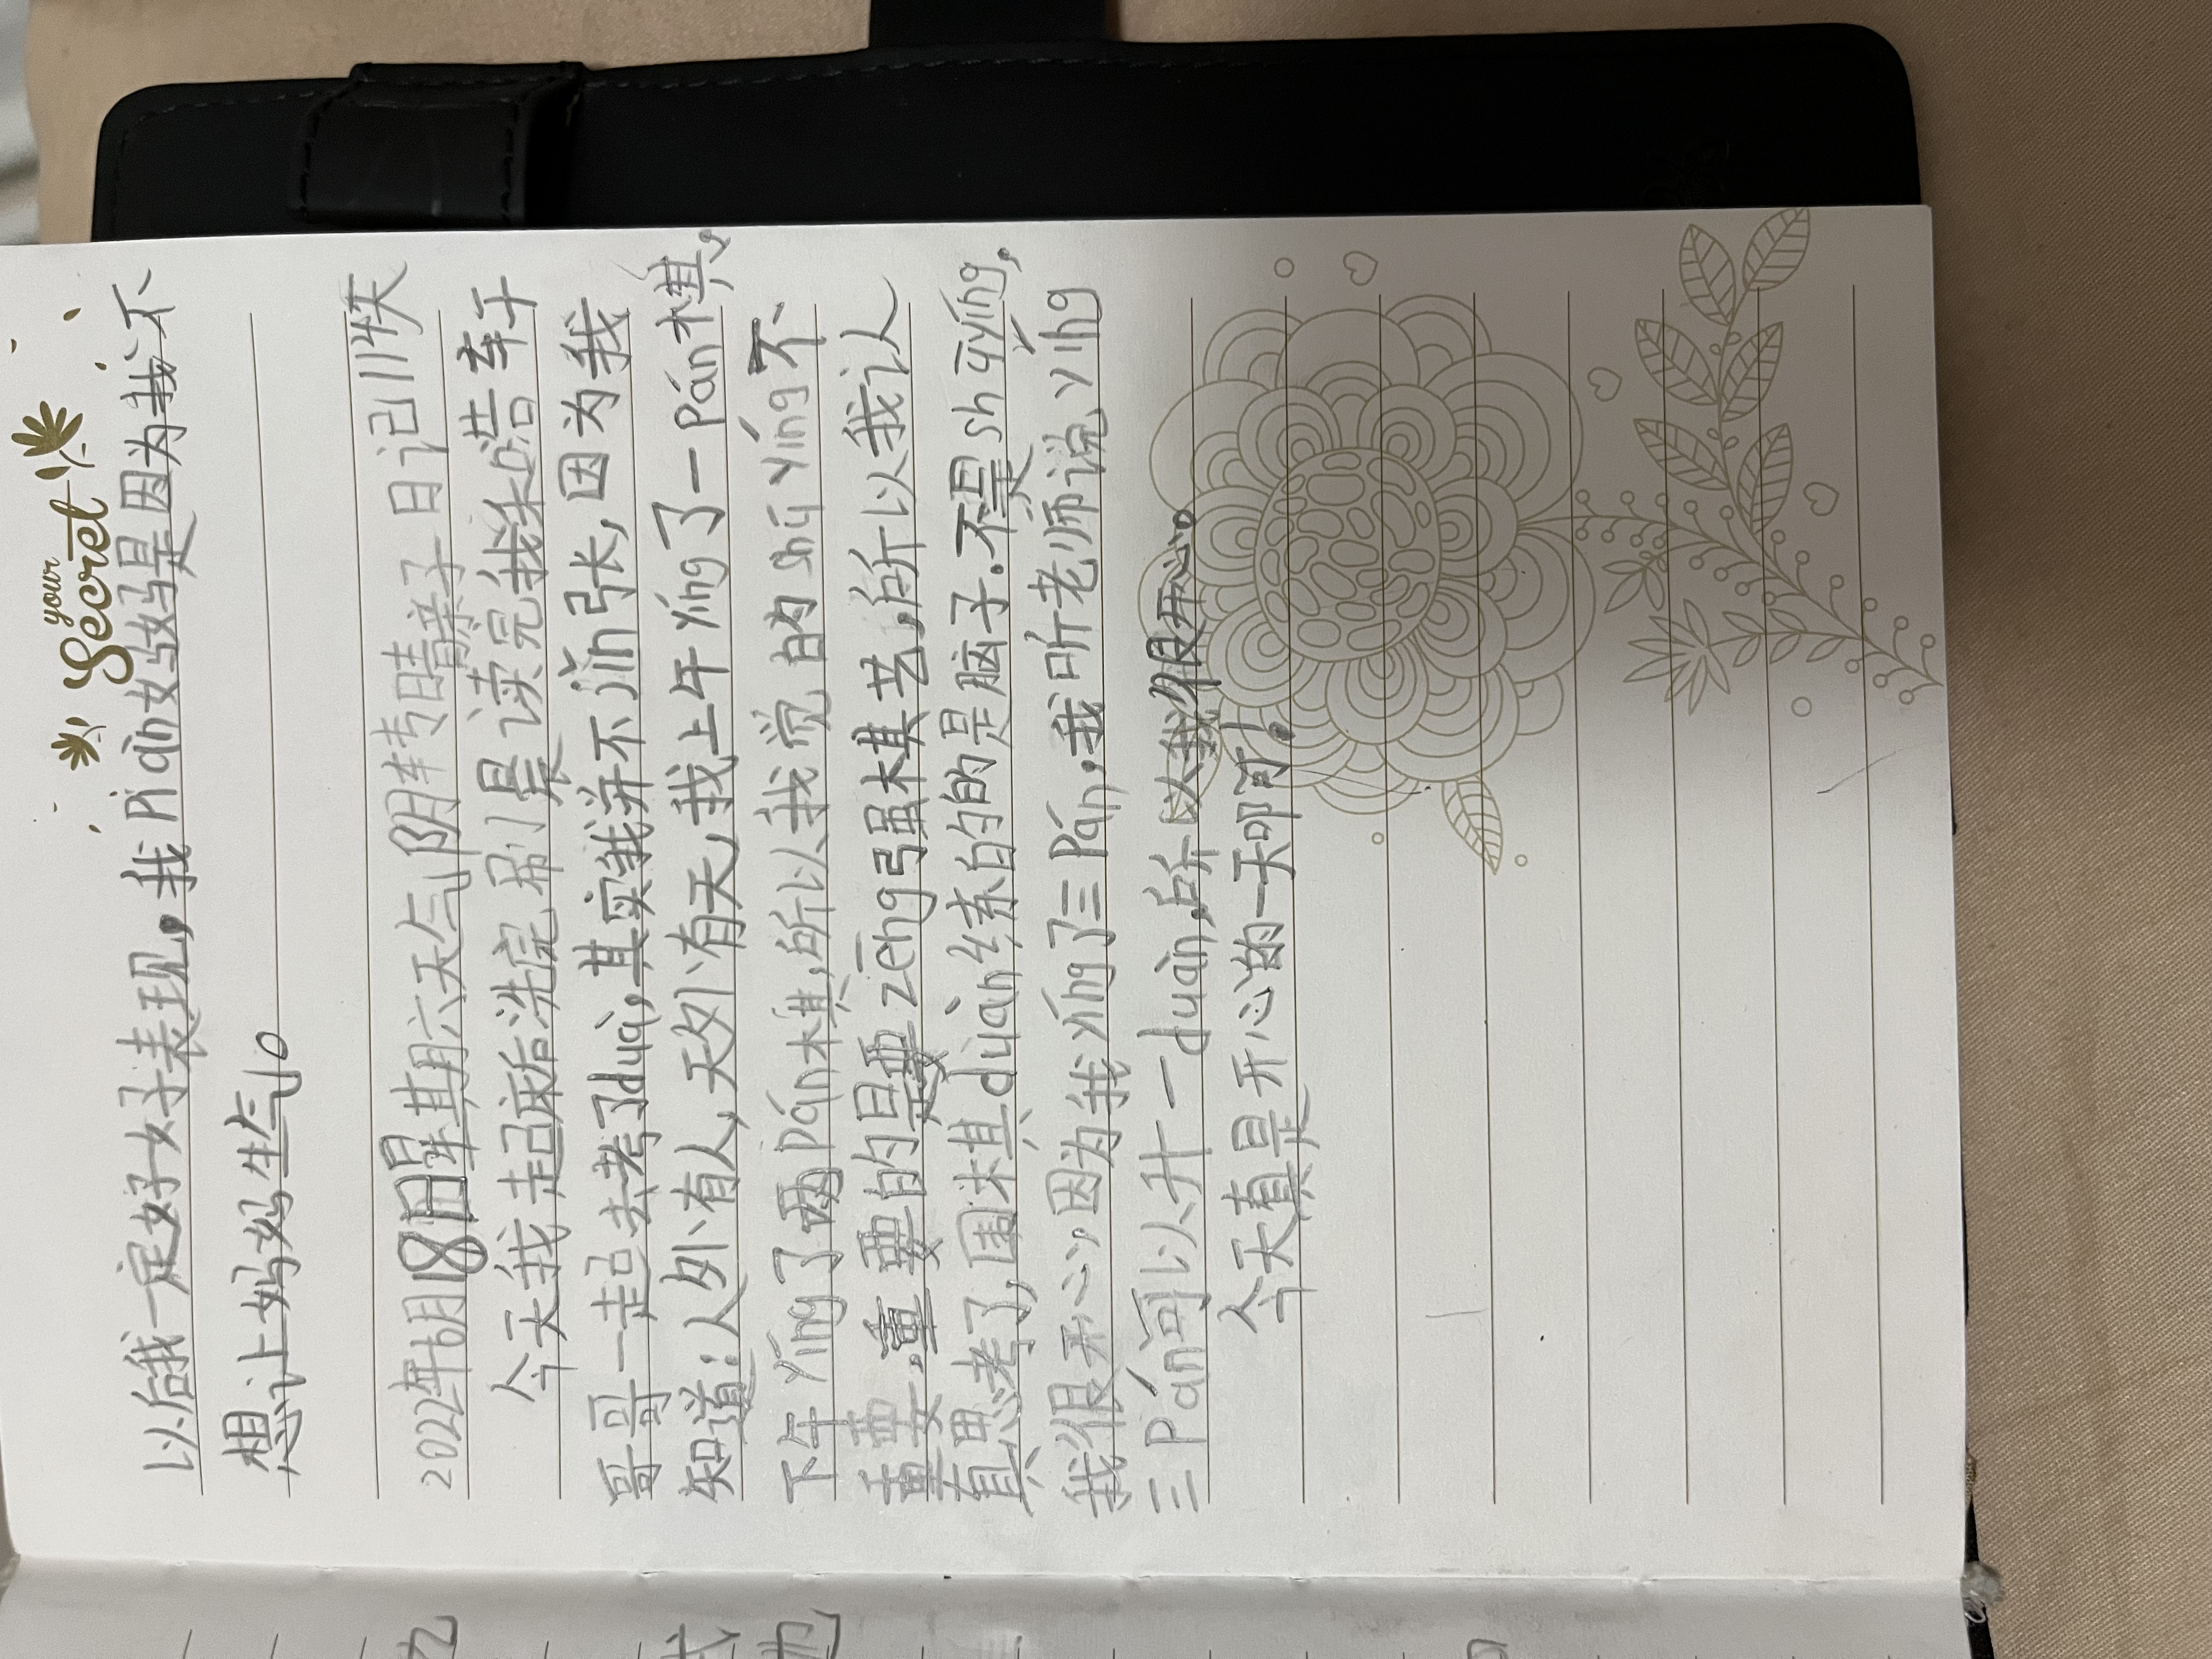 your
Secret
以后我一定好好表现,我Piàn妈妈是因为我不
想让妈妈生气。
2022年6月18日星期六天气阴转晴亲子日记114天
今天我起床后洗完,刷完,读完我和浩轩
哥哥一起去考了duàn,其实我并不jǐn张,因为我
知道:人外有人,天外有天,我上午yíng了一Pán棋,
下午yíng了两pán棋,所以我觉的shū yíng不
重要,重要的是要zēng强棋艺,所以我认
真思考了,围棋duàn练的是脑子.不是shūyíng,
我很开心因为我yíng了三Pán,我听老师说yíng
三Pán可以升一duàn,所以我很开心。
今天真是开心的一天啊!